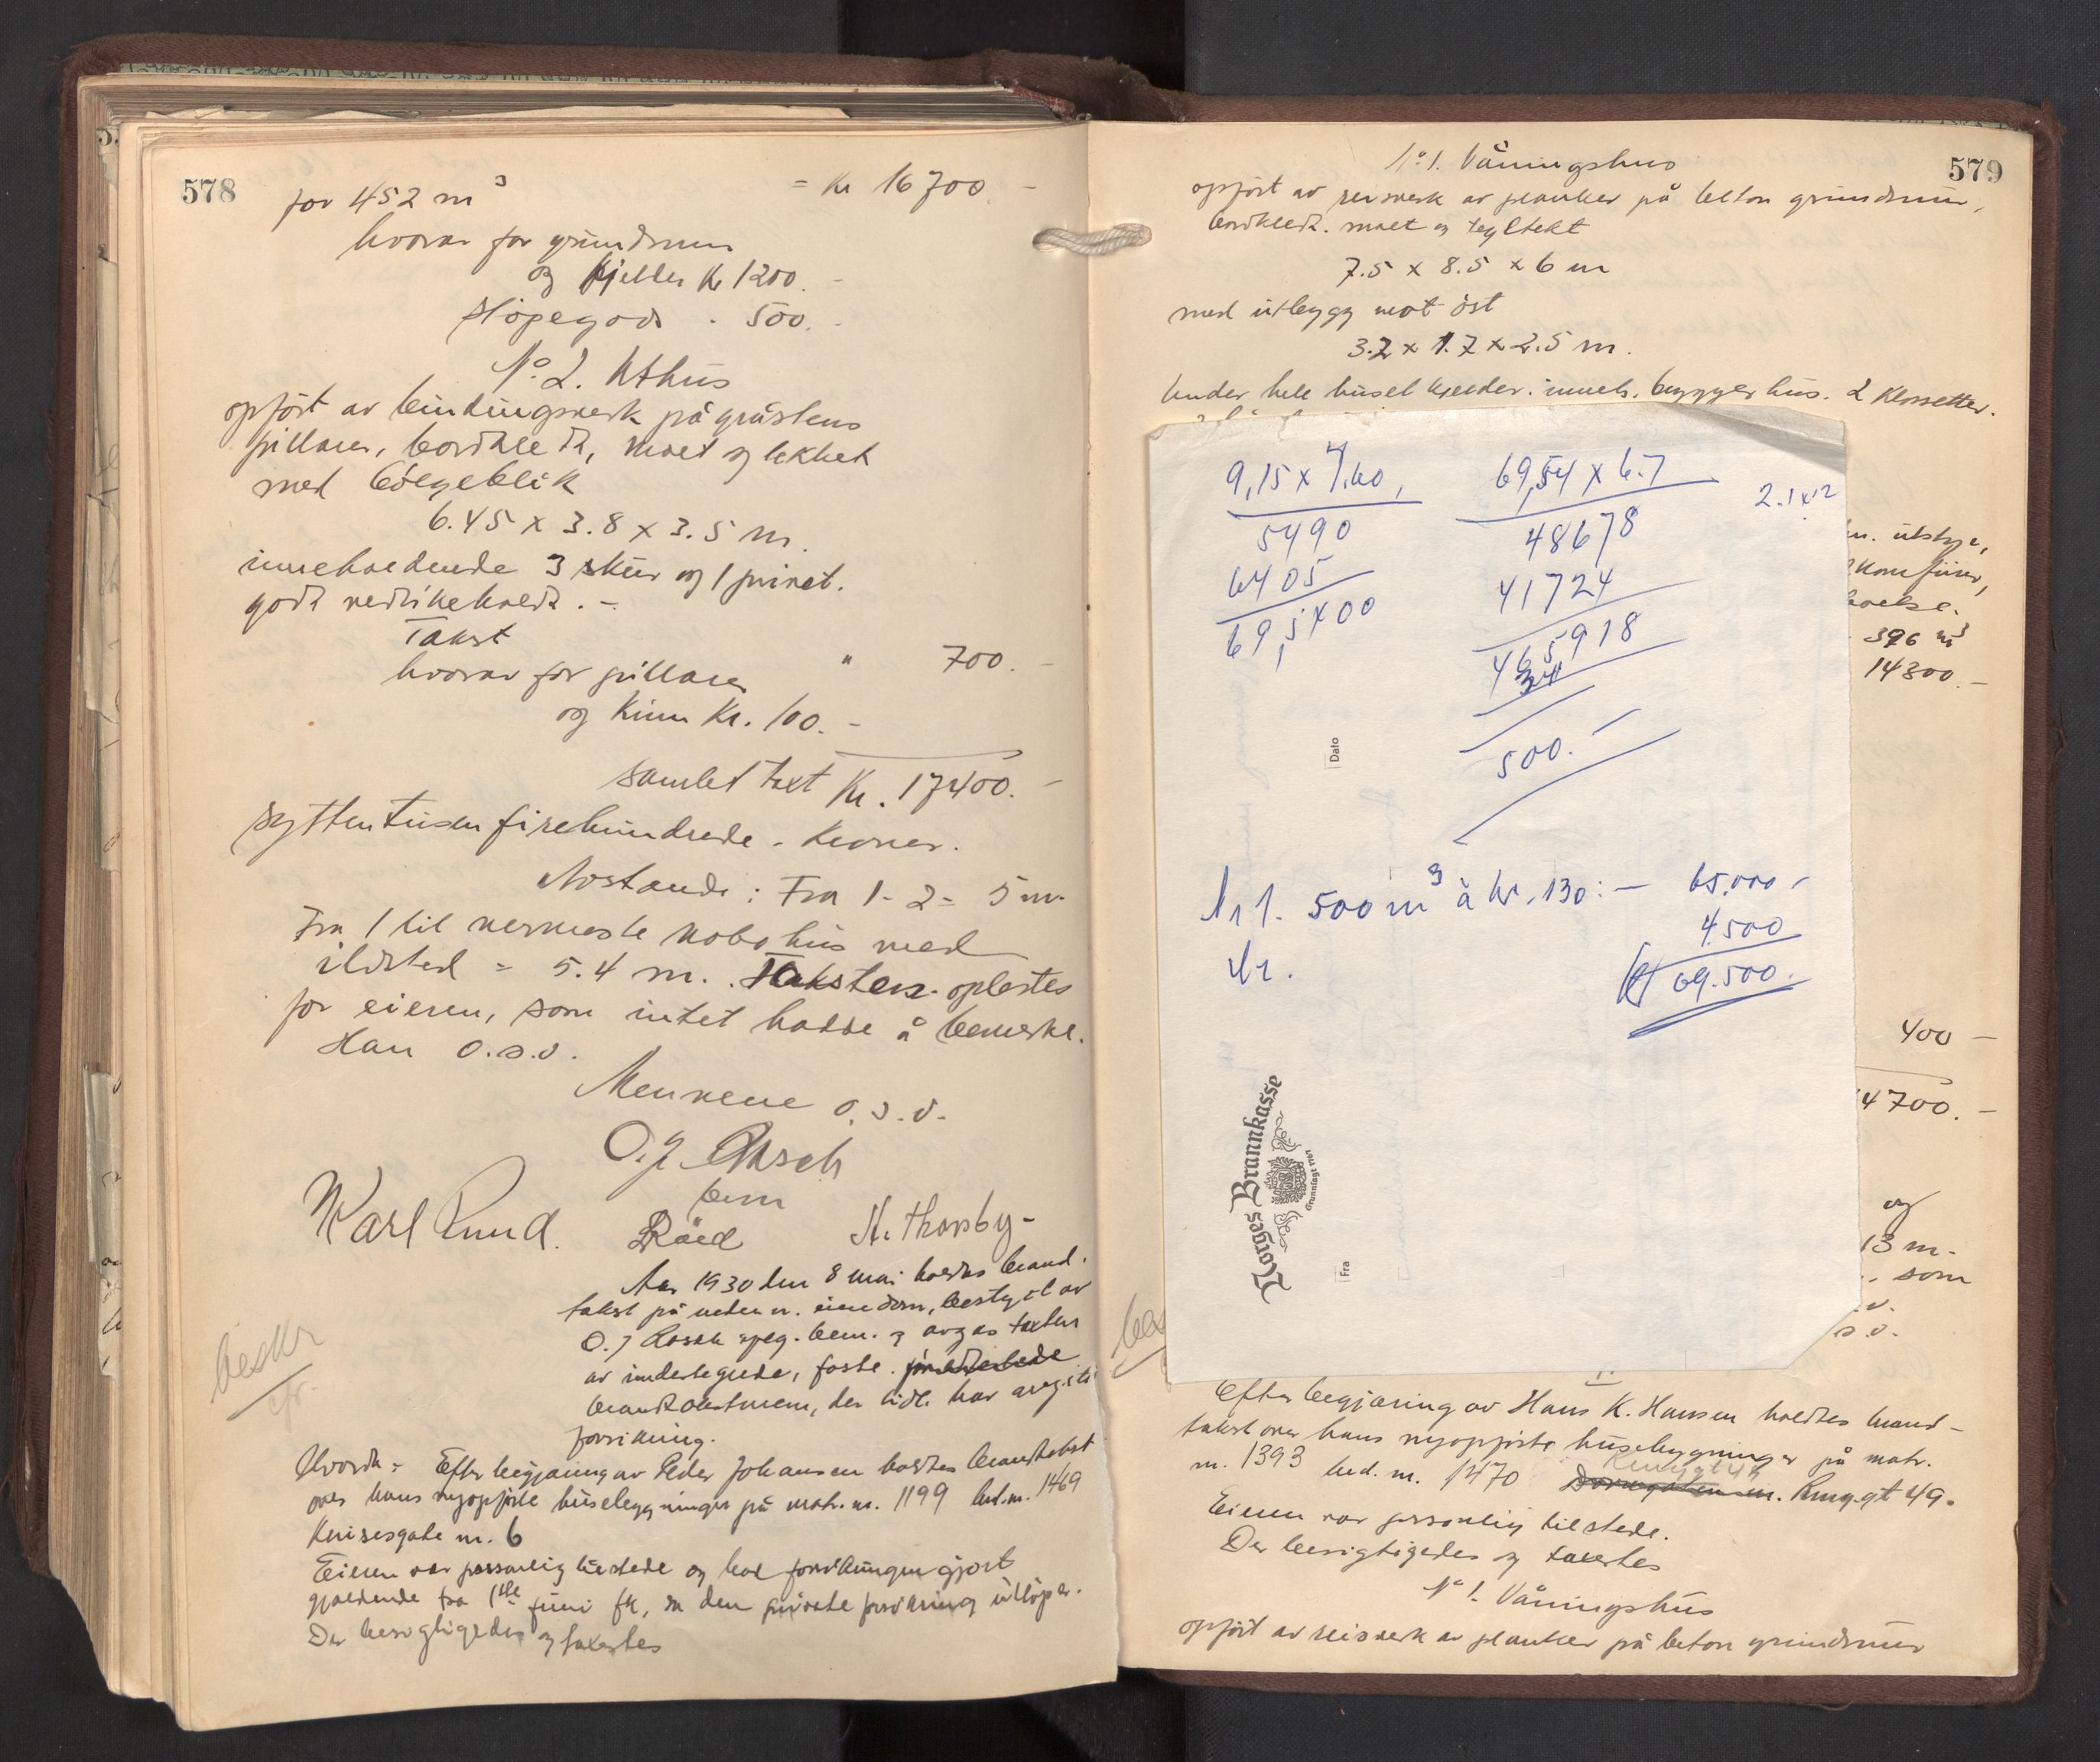 578
for 452 m3 = Kr 16700 -
hvorav for grundmur
og kjeller Kr 1200. -
Støpegods - 500. -
No 2. Uthus
opført av bindingsverk på gråstens
pillarer, bordkledt, malt og tekket
med bølgeblik
6.45 x 3.8 x 3.5 m.
inneholdende 3 skur og 1 privet.
godt vedlikeholdt. -
Takst " 700. -
hvorav for pillarer
og Kinn Kr. 100. -
samlet taxt Kr. 17400. -
syttentusenfirehundrede - Kroner.
Avstande: Fra 1 - 2 = 5 m.
Fra 1 til nermeste nabohus med
ildsted = 5.4 m. Taksten oplestes
for eieren, som intet hadde å bemerke.
Han o.s.v.
Mennene o.s.v.
O. J. Aasch
bem
Karl Ruud. Röed N. Thorsby -
Aar 1930 den 8 mai holdtes brand-
takst på eiendom, bestyret av
O. J. bem. og avgas taxten
av undertegnede, faste
brandtakstmenn, der tidl. har avgitt
forsikring.
Hvorda = Efter begjæring av Peder Johansen holdtes brandtakst
over hans nyopførte husebygninger på matr. nr. 1199 br.d.nr. 1469
gate nr. 6
Eieren var personlig tilstede og lod forsikringen gjort
gjældende fra 1ste juni fk, da den private forsikring utløper.
Der besigtigedes og taxertes
beskr
579
No 1. Våningshus
opført av reisverk av planker på beton grundmur,
bordkledt. malt og tegltekt
7.5 x 8.5 x 6 m
med utbygg mot öst
3.2 x 1.7 x 2.5 m.
Under hele huset kjelder. inneh. bryggerhus. 2 Klossetter.
utstyr,
Komfurer,
396 m3
14300 -
400 -
14700. -
og
13 m.
som
s.v.
9,15 x 7,60,
5490
6405
69,5400
69,54 x 6.7
48678
41724
465918
34
500. -
2.1 x 12
Dato
Nr 1. 500 m3 à kr. 130: - 65.000 -
4.500
Nr. Kr 69.500.
Norges Brannkasse
Grunnlagt 1767
Fra
Efter begjæring av Hans K. Hansen holdtes brand-
takst over hans nyopførte husebygninger på matr.
nr. 1393 br.d. nr. 1470 Ringgt 49.
Eieren var personlig tilstede.
Der besigtigedes og taxertes
No 1. Våningshus
opført av reisverk av planker på beton grundmur